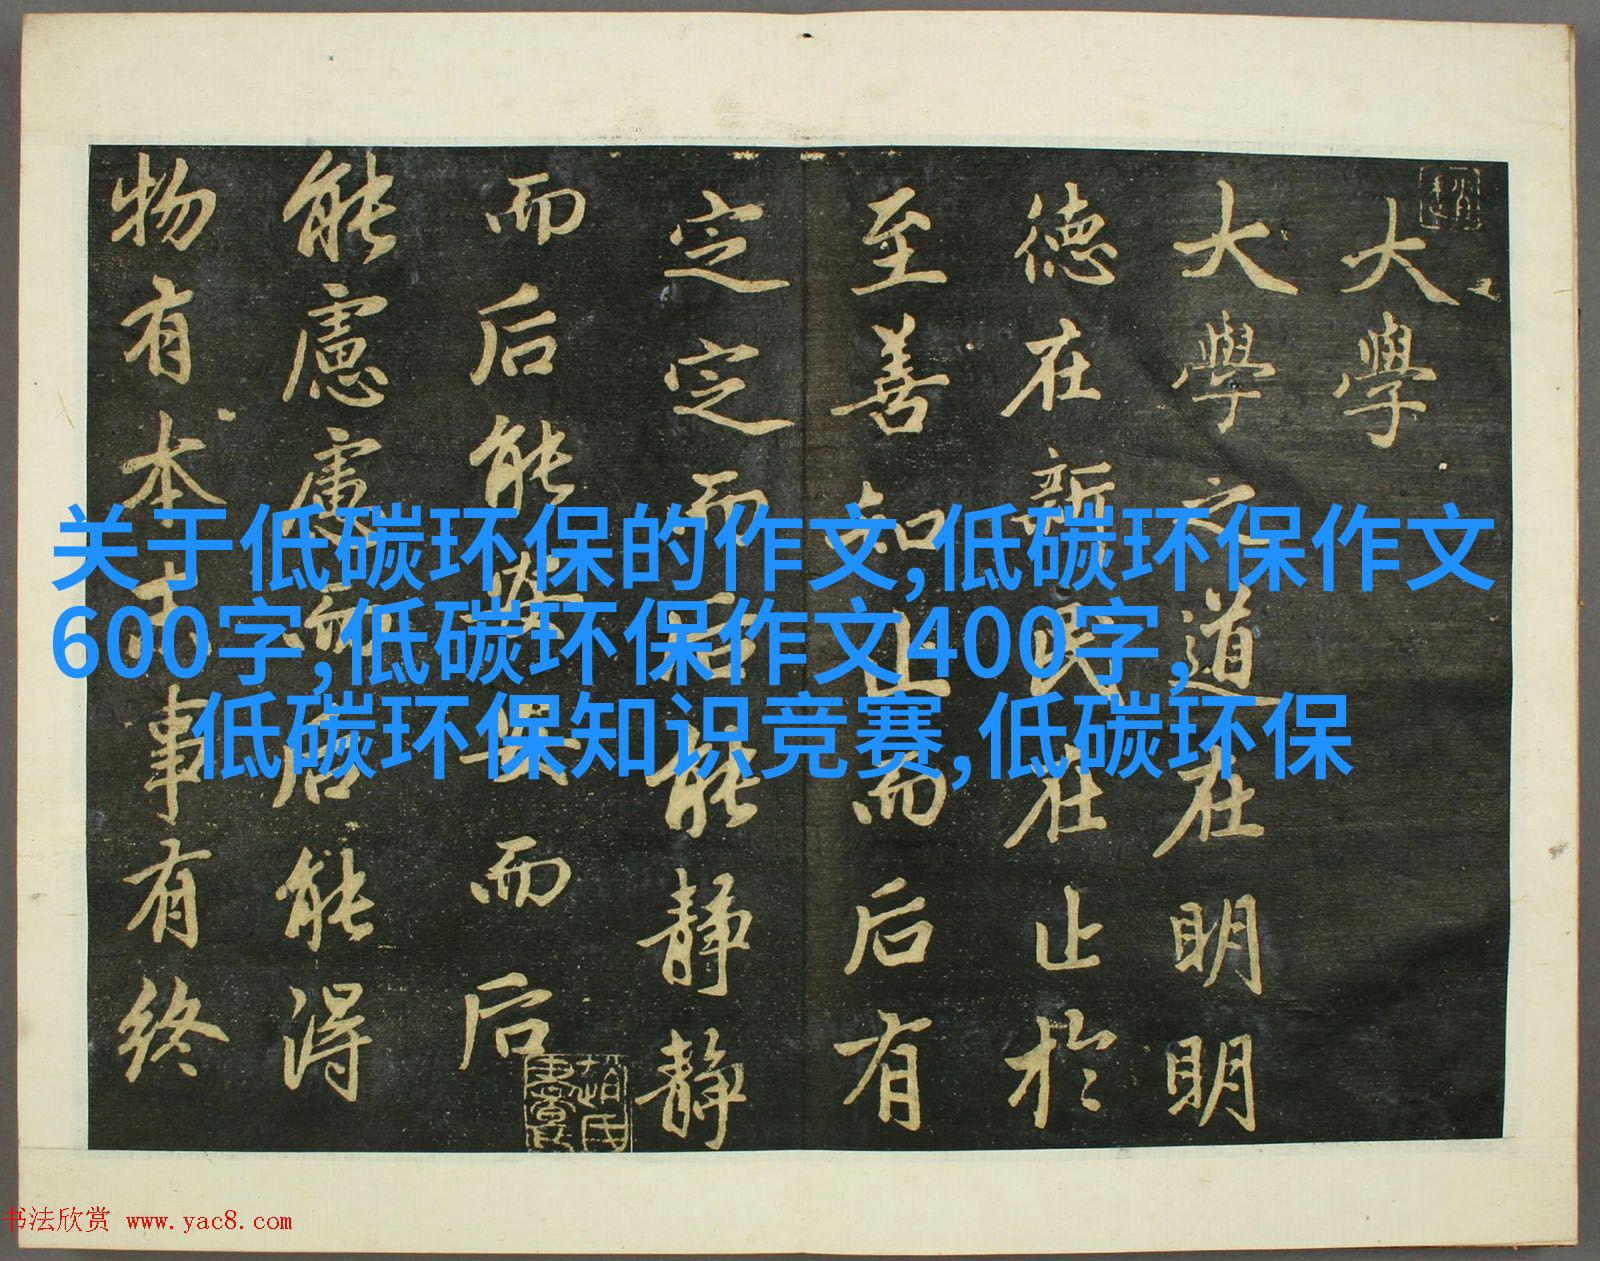 大學
大學之道在明明
德在新民在止於
至善知止而后有
定定而后能静静
而后能安安而后
能慮慮而后能得
物有本末事有終
关于低碳环保的作文,低碳环保作文
600字,低碳环保作文400字,
低碳环保知识竞赛,低碳环保
书法欣赏 www.yac8.com